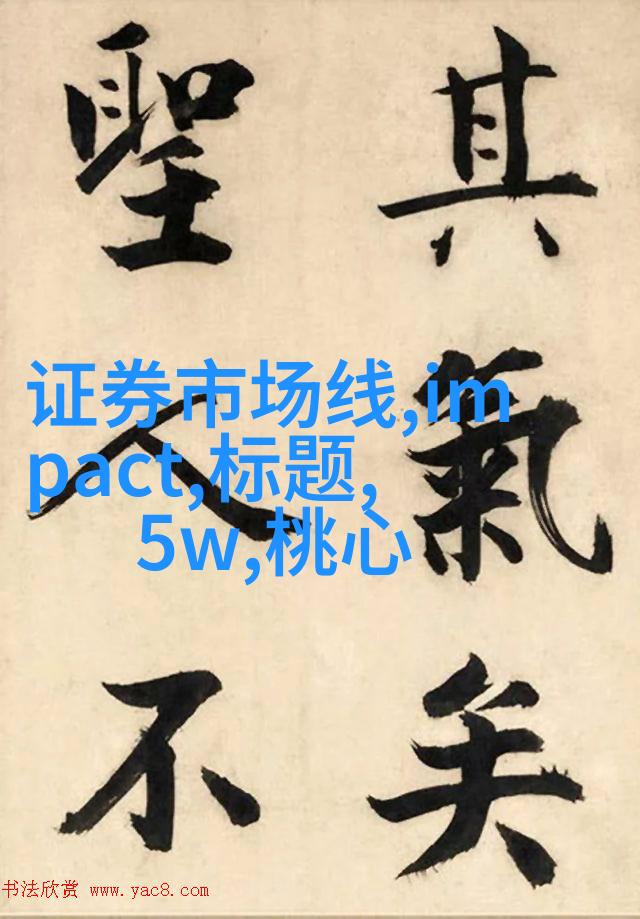 其氣矣
聖人不
证券市场线,im
pact,标题,
5w,桃心
书法欣赏 www.yac8.com